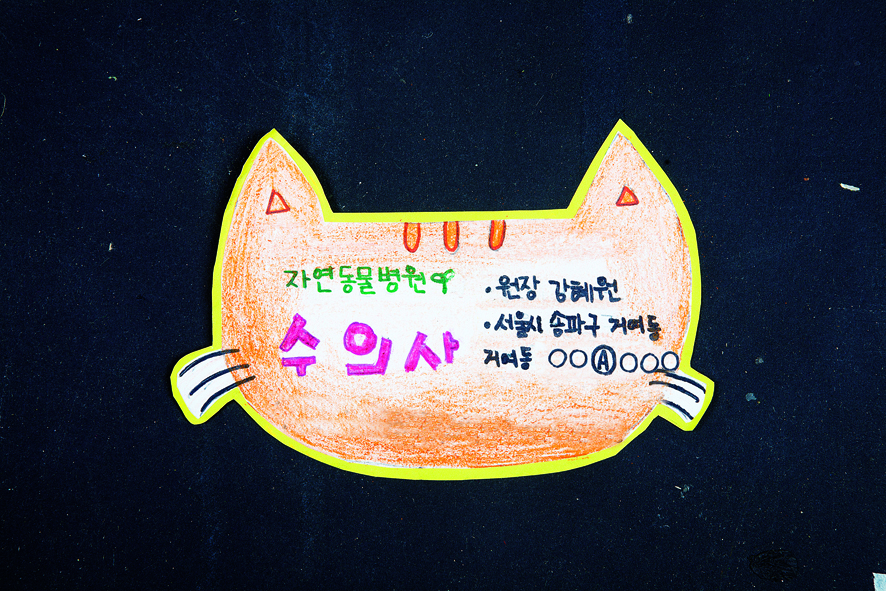 자연동물병원
수의사
·원장 김혜원
·서울시 송파구 거여동
거여동 ○○Ⓐ○○○